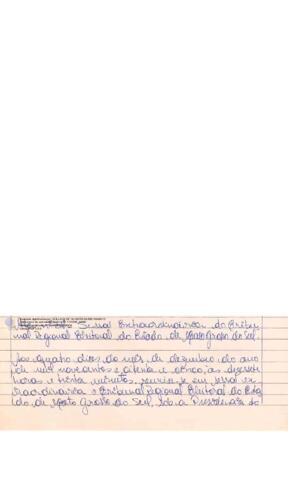 Sessão Extraordinária do Tribu-
nal Regional Eleitoral do Estado de Mato Grosso do Sul.
Aos quatro dias do mês de dezembro do ano
de mil novecentos e oitenta e oito, às dezessete
horas e trinta minutos, reuniu-se em sessão ex-
traordinária o Tribunal Regional Eleitoral do Esta-
do de Mato Grosso do Sul, sob a Presidência do